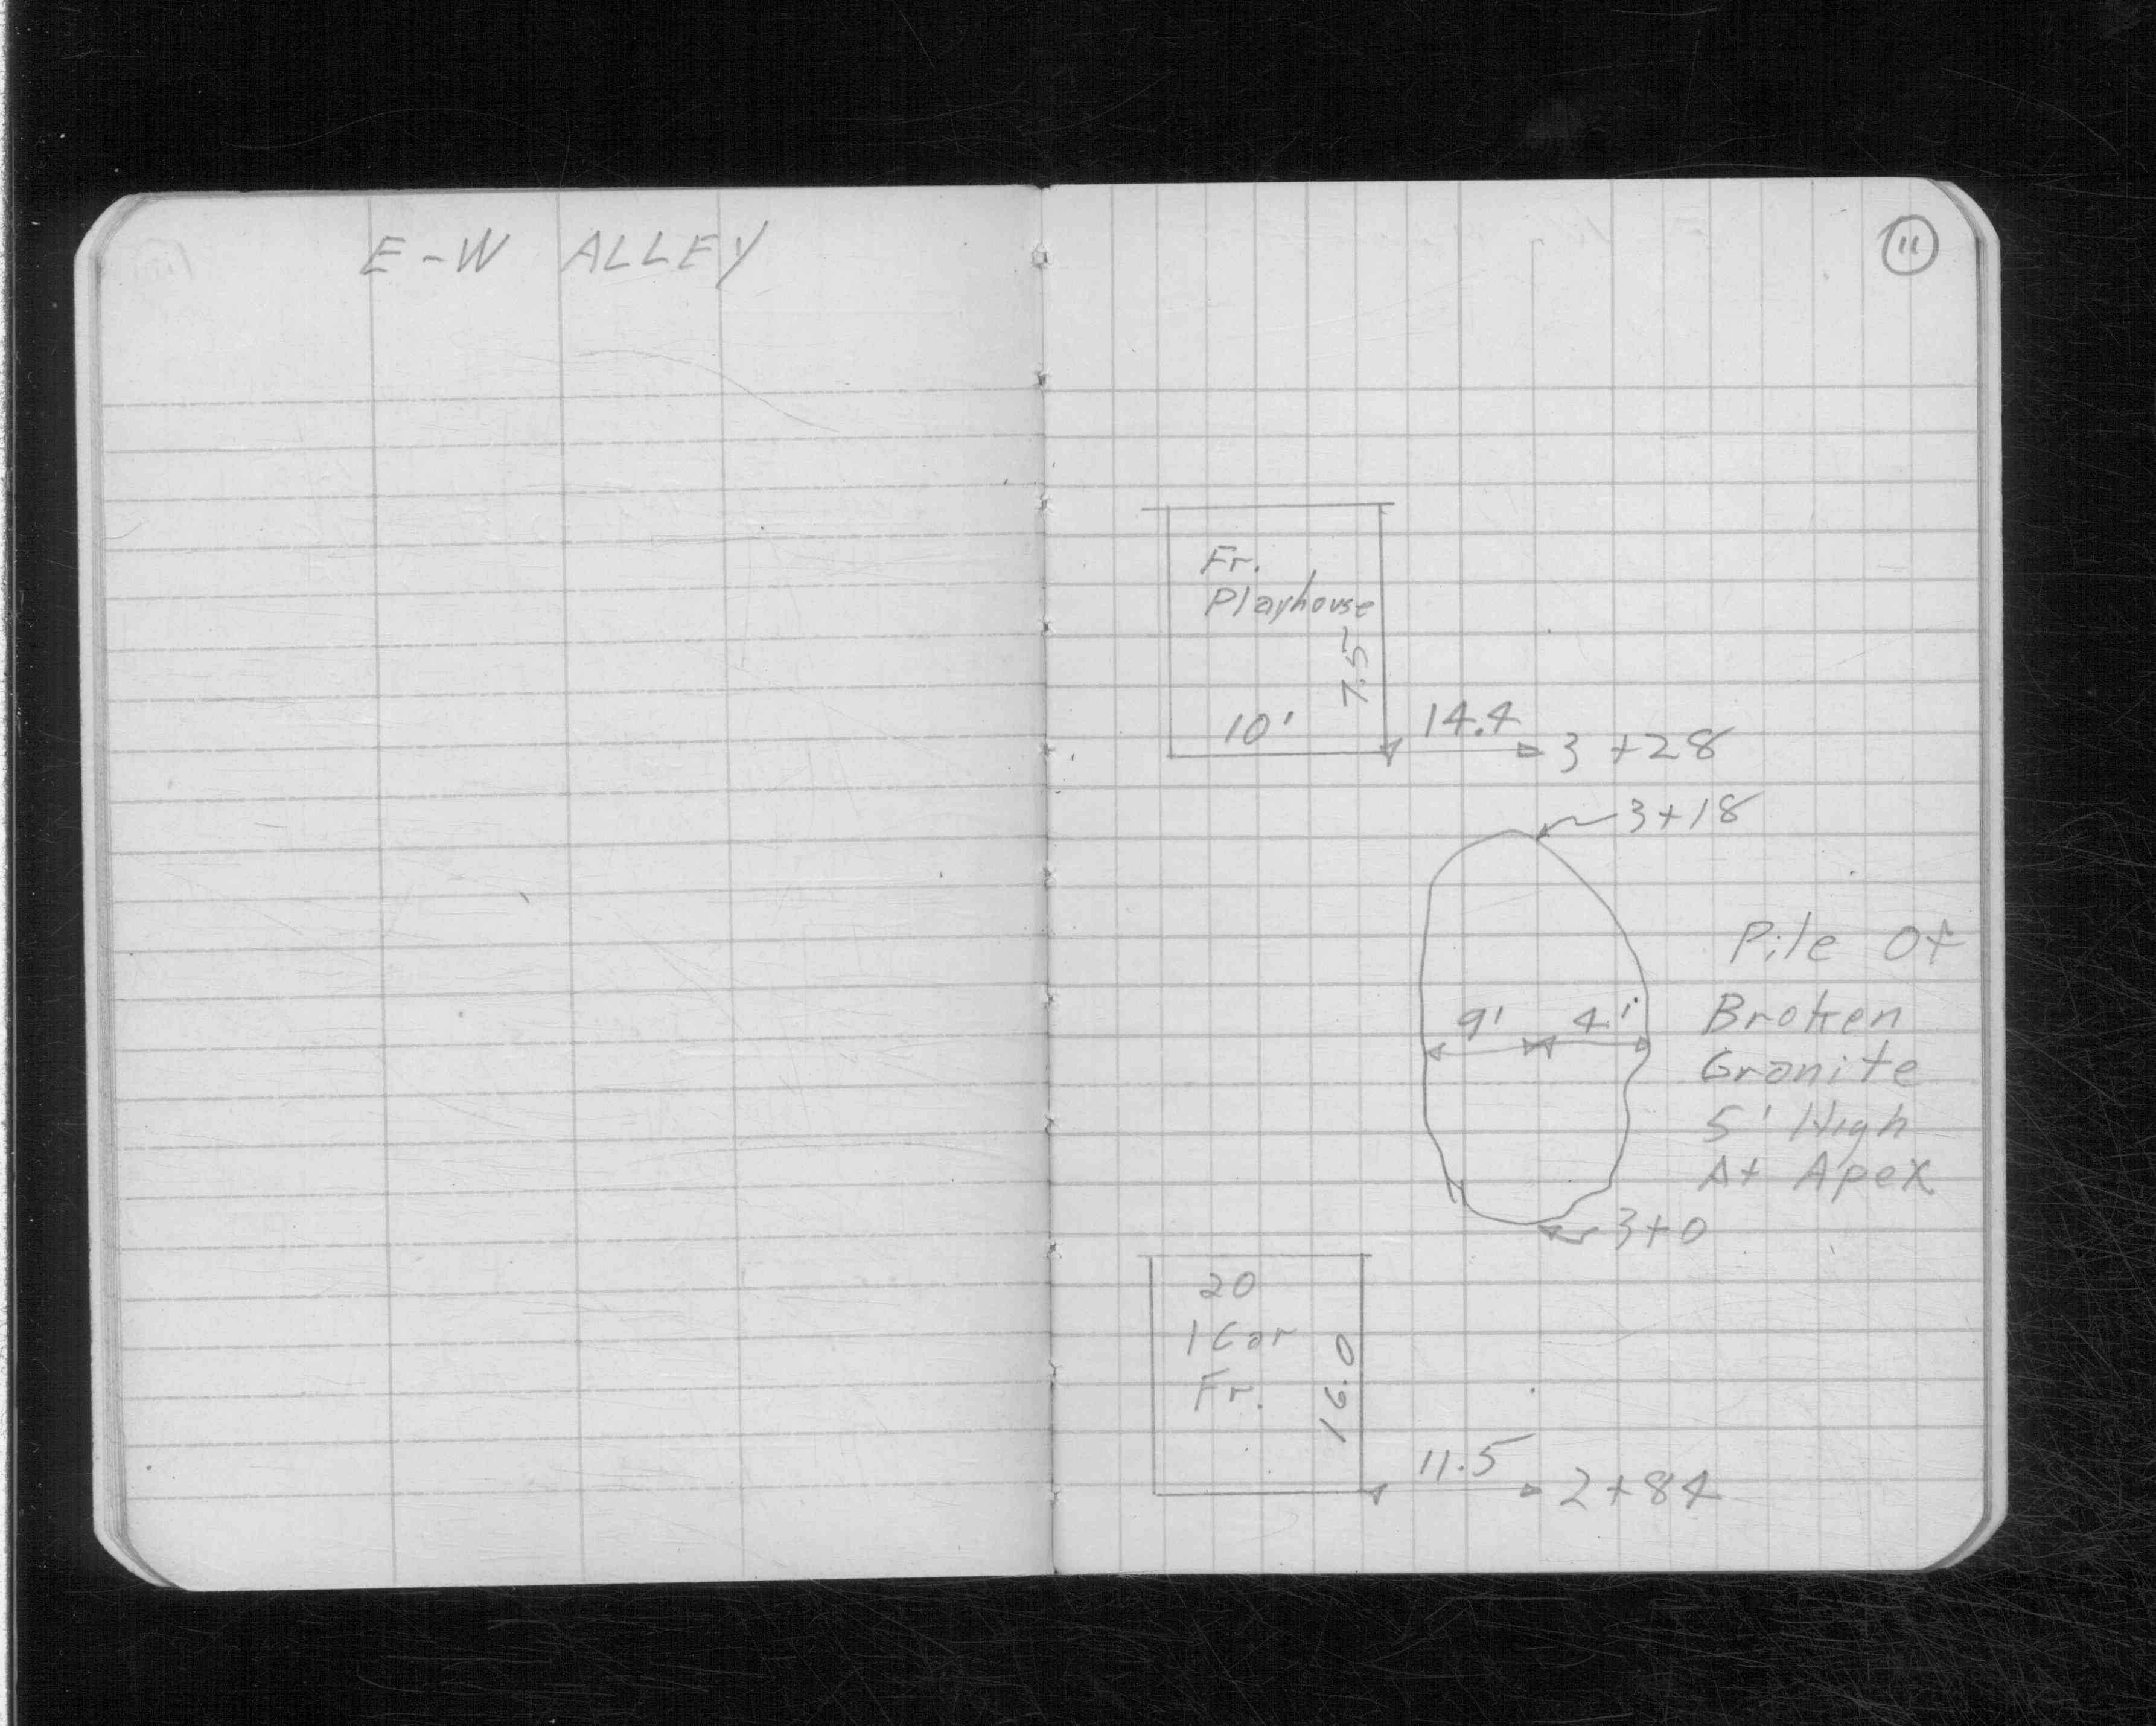 E-W ALLEY
11
Fr.
Playhouse
7.5
10'
14.4
3+28
3+18
Pile Of
9' 4'
Broken
Granite
5' High
At Apex
3+0
20
1 Car
Fr.
16.0
11.5
2+84